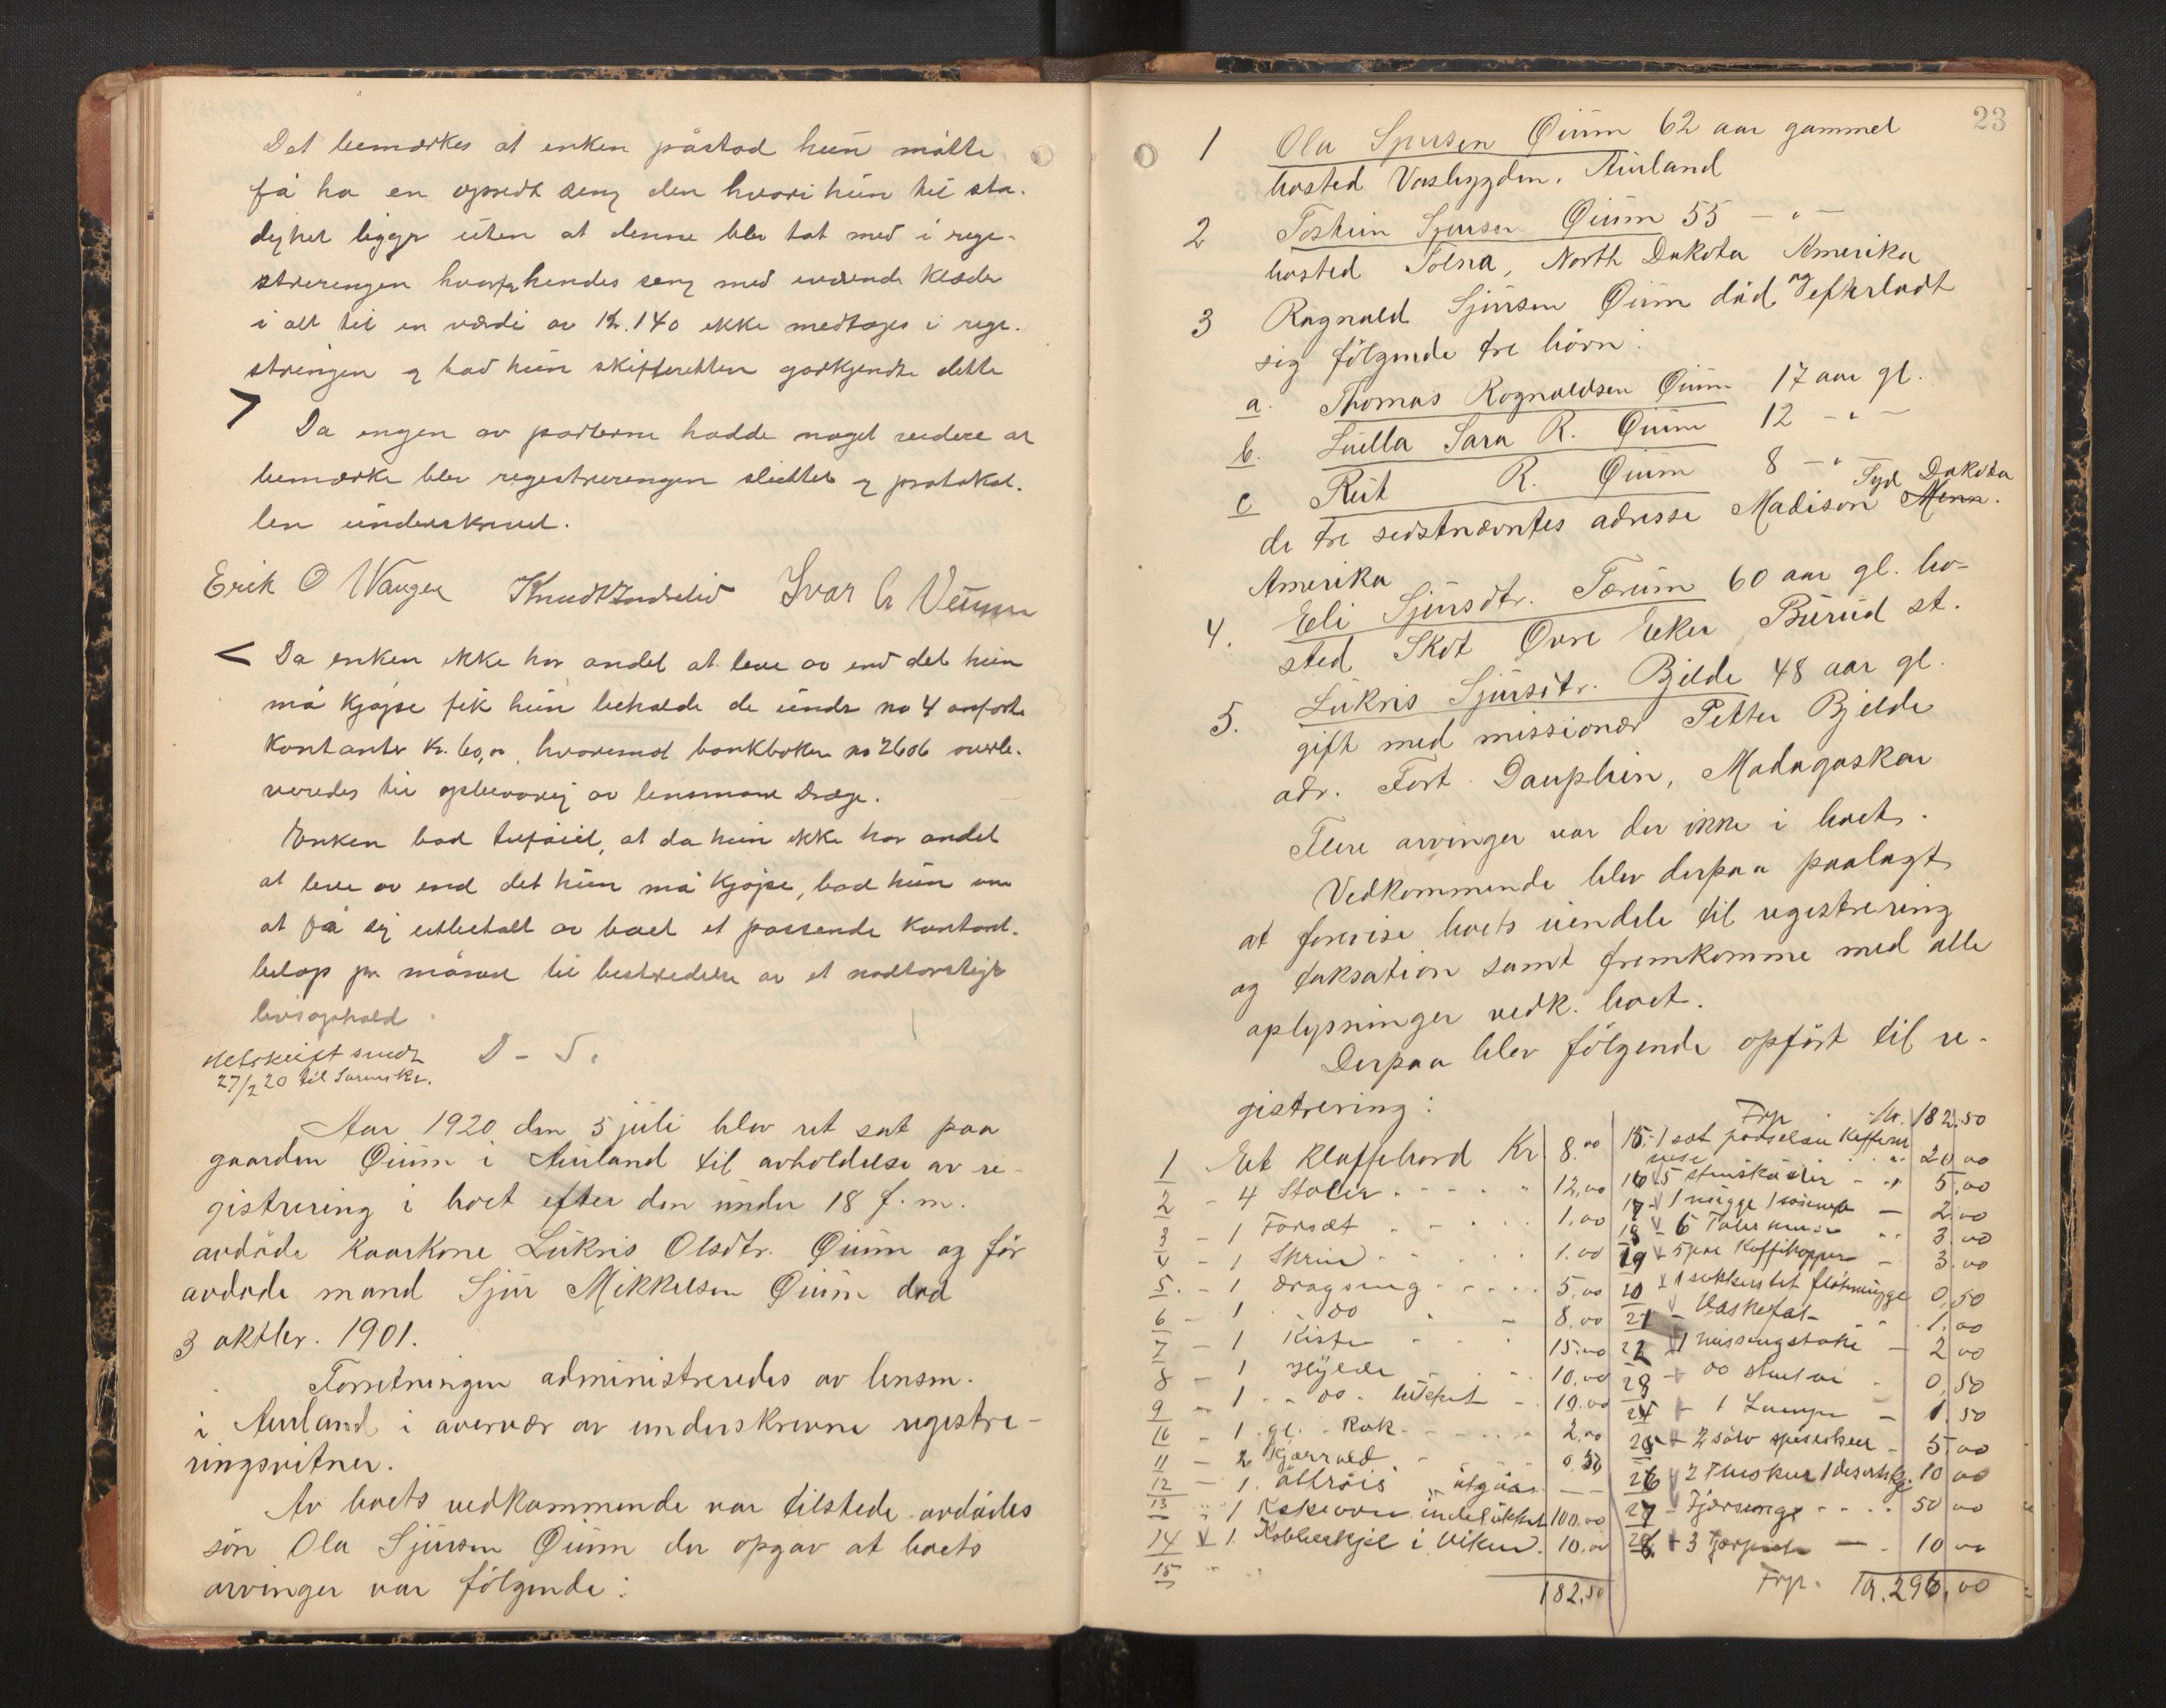 Det bemærkes at enken påstod hun måtte
få ha en opredt seng den hvori hun til sta-
dighet ligger uten at denne blev tat med i regi-
streringen hvorfor hendes seng med værende klæder
i alt til en værdi av kr. 140 ikke medtages i regi-
streringen og bad hun skifteretten godkjendte dette
>
Da ingen av parterne hadde noget videre at
bemærke blev registreringen sluttet og protokol-
len underskrevet.
Erik O Wangen Knudt Ivar
< Da enken ikke har andet at leve av end det hun
må kjøpe fik hun beholde de under no 4 anførte
kontanter kr. 60,00, hvorimot bankboken no 2606 overle-
veredes til opbevaring av lensmann
Enken bad tilføiet, at da hun ikke har andet
at leve av end det hun må kjøpe, bad hun om
at få sig utbetalt av boet et passende kontant-
beløp pr måned til bestridelse av et nødtørftigt
livsophold
D - S.
Utskrift sendt
27/2 20 til Sorenskr.
Aar 1920 den 5 juli blev ret sat paa
gaarden Øium i Aurland til avholdelse av re-
gistrering i boet efter den under 18 f.m.
avdöde kaarkone Lukris Olsdtr. Øium og för
avdøde mand Sjur Mikkelsen Øium död
3 oktbr. 1901.
Forretningen administreredes av lensm.
i Aurland i overvær av underskrevne registre-
ringsvitner.
Av boets vedkommende var tilstede avdödes
sön Ola Sjursen Øium der opgav at boets
arvinger var fölgende:
23
1 Ola Sjursen Øium 62 aar gammel
bosted Vasbygden, Aurland
2 Tostein Sjursen Øium 55 - " -
bosted Tolna, North Dakota Amerika
3 Ragnald Sjursen Øium död og efterladt
sig fölgende tre börn:
a. Thomas Rognaldsen Øium 17 aar gl.
b. Luella Sara R. Øium 12 - " -
c Rut R. Øium 8 - " -
Syd Dakota
de tre sidstnævntes adresse Madison Minn.
Amerika
4. Eli Sjursdtr. Tærum 60 aar gl. bo-
sted Skot Øvre Eker Burud st.
5. Lukris Sjursdtr. Bjelde 48 aar gl.
gift med missionær Petter Bjelde
adr. Fort Dauphin, Madagaskar
Flere arvinger var der ikke i boet.
Vedkommende blev derpaa paalagt
at forevise boets eiendele til registrering
og taksation samt fremkomme med alle
oplysninger vedk. boet.
Derpaa blev fölgende opfört til re-
gistrering:
1 Et Klaffebord Kr 8.00
2 - 4 Stoler 12,00
3 - 1 Forsæt 1,00
4 - 1 Skrin 1.00
5. - 1 Dragseng 5,00
6 - 1 do 8,00
7 - 1 Kiste 15.00
8 - 1 Hylde 10,00
9 - 1 do 10.00
10 - 1 gl. Rok 2,00
11 - 2 Kjørrald 0.50
12 - 1. utgaar - -
13 " 1 Kakeovn 100.00
14 v 1. Kobberkjel i Viken 10,00
15
182.50
Frp kr. 182.50
15. 1 sæt porselæn Kaffeser
vise 20,00
16 5 5,00
17 1 mugge 1 2,00
18 6 3.00
19 5 par Kaffikopper 3.00
20 1 flötemugge 0,50
21 Vaskefat 1,00
22 1 messingstake 2,00
23 do 0,50
24 1 Lampe 1.50
25 2 sölv spiseskeer 5,00
26 2 Theskeer 1 10,00
27 50,00
28 3 10,00
Frp. Kr. 296,00